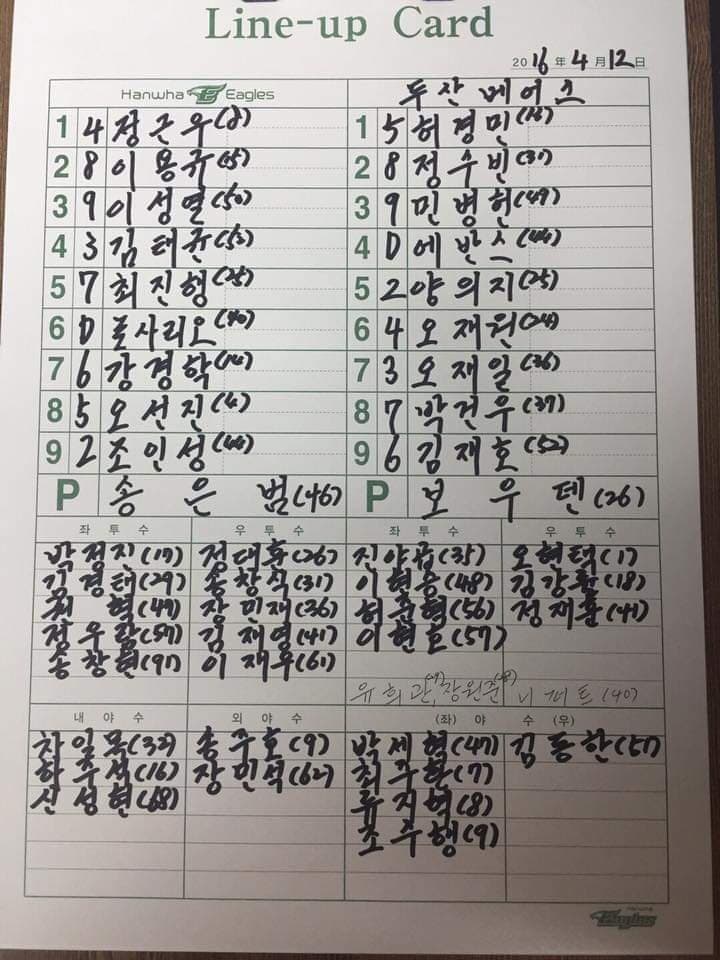 Line-up Card
2016年 4月 12日
Hanwha Eagles 두산 베어스
1 4 정근우(8) 1 5 허경민(13)
2 8 이용규(15) 2 8 정수빈(31)
3 9 이성열(50) 3 9 민병헌(49)
4 3 김태균(52) 4 D 에반스(44)
5 7 최진행(25) 5 2 양의지(25)
6 D 로사리오(40) 6 4 오재원(24)
7 6 강경학(14) 7 3 오재일(36)
8 5 오선진(4) 8 7 박건우(37)
9 2 조인성(44) 9 6 김재호(52)
P 송은범(46) P 보우덴(26)
좌투수 우투수 좌투수 우투수
박정진(17) 정대훈(26) 진야곱(35) 오현택(1)
김경태(29) 송창식(31) 이현승(48) 김강률(18)
혁(47) 장민재(36) 허준혁(56) 정재훈(41)
정우람(57) 김재영(41) 이현호(57)
송창현(97) 이재우(61)
유희관, 장원준 니퍼트(40)
내야수 외야수 (좌)야수(우)
차일목(32) 송주호(9) 박세혁(47) 김동한(57)
하주석(16) 장민석(62) 최주환(7)
신성현(68) 류지혁(8)
조수행(9)
Hanwha Eagles